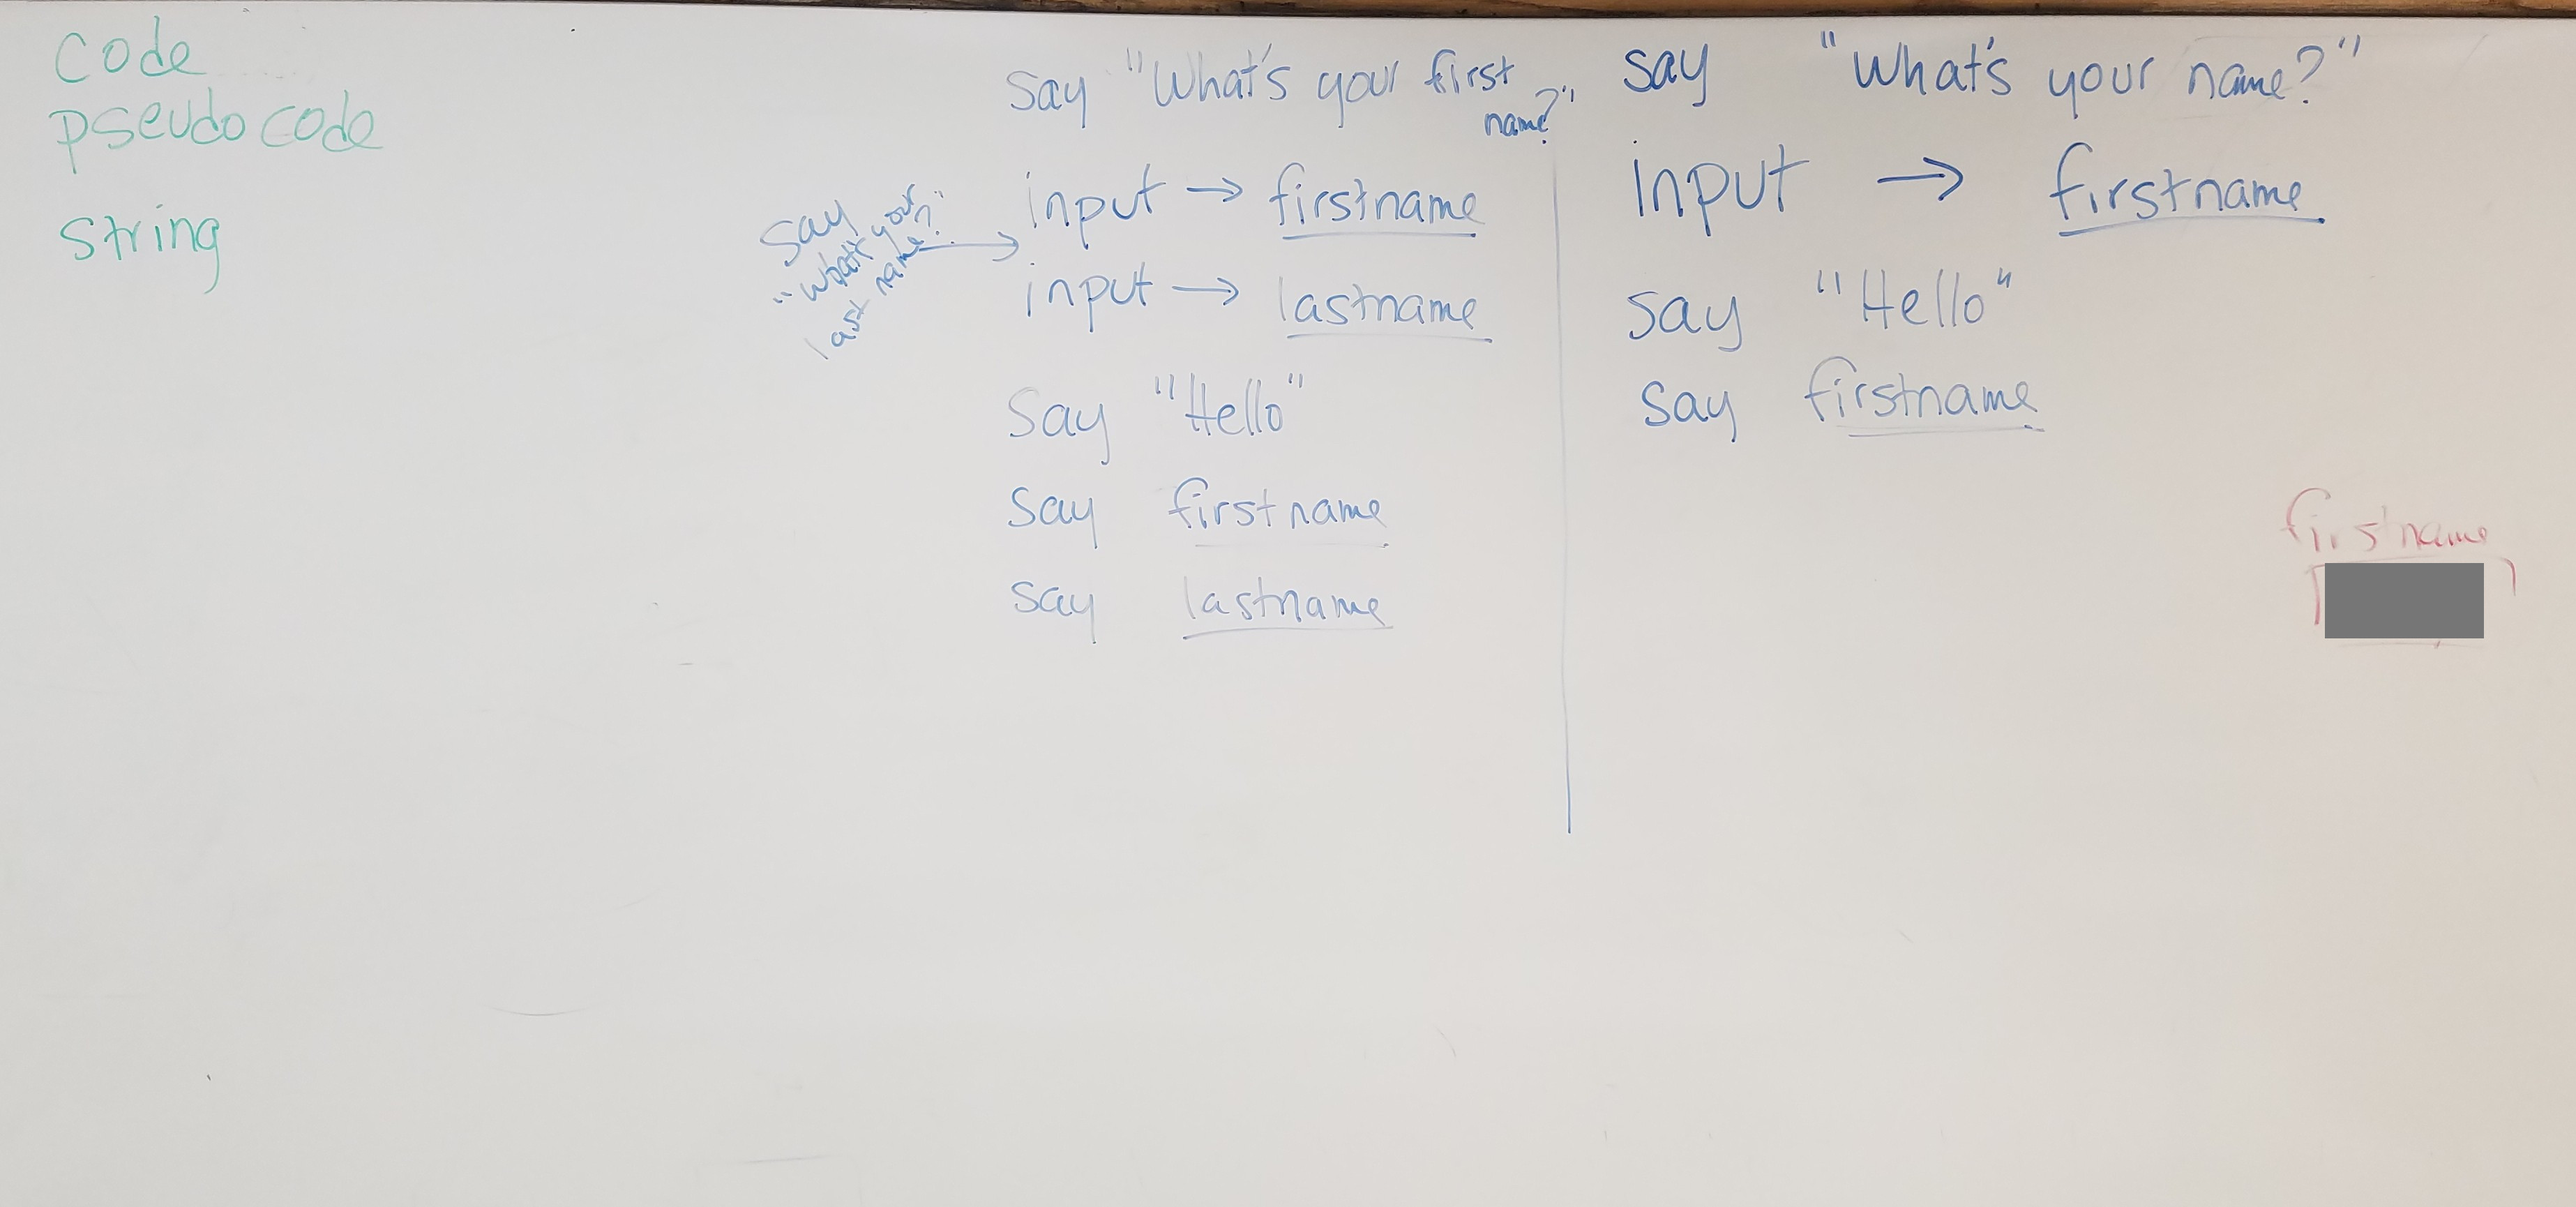 code
pseudo code
string
Say "What's your first
name?"
input → firstname
say
"What's your
last name?"
input → lastname
Say "Hello"
Say firstname
say lastname
say "What's your name?"
input → firstname
say "Hello"
say firstname
firstname